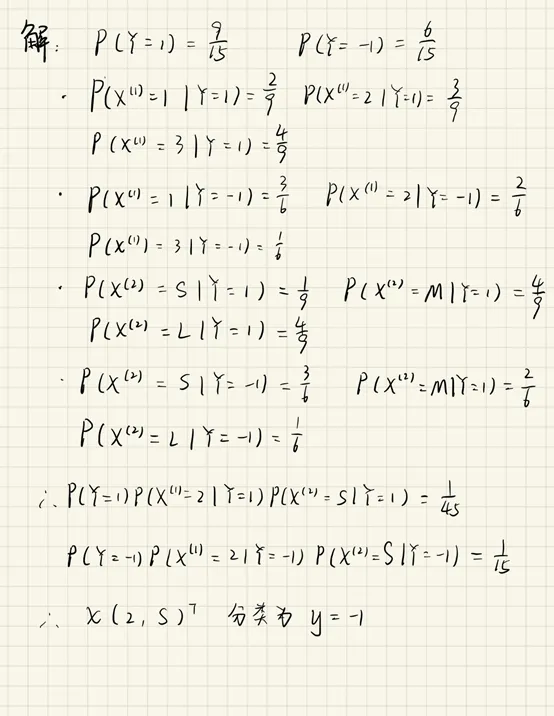 解: P(Y=1) = 9/15 P(Y=-1) = 6/15
· P(X⁽¹⁾=1 | Y=1) = 2/9 P(X⁽¹⁾=2 | Y=1) = 3/9
P(X⁽¹⁾=3 | Y=1) = 4/9
· P(X⁽¹⁾=1 | Y=-1) = 3/6 P(X⁽¹⁾=2 | Y=-1) = 2/6
P(X⁽¹⁾)=3 | Y=-1) = 1/6
· P(X⁽²⁾=S | Y=1) = 1/9 P(X⁽²⁾=M | Y=1) = 4/9
P(X⁽²⁾=L | Y=1) = 4/9
· P(X⁽²⁾=S | Y=-1) = 3/6 P(X⁽²⁾=M | Y=1) = 2/6
P(X⁽²⁾=L | Y=-1) = 1/6
∴ P(Y=1)P(X⁽¹⁾=2 | Y=1)P(X⁽²⁾=S | Y=1) = 1/45
P(Y=-1)P(X⁽¹⁾=2 | Y=-1)P(X⁽²⁾=S | Y=-1) = 1/15
∴ x(2,S)ᵀ 分类为 y=-1